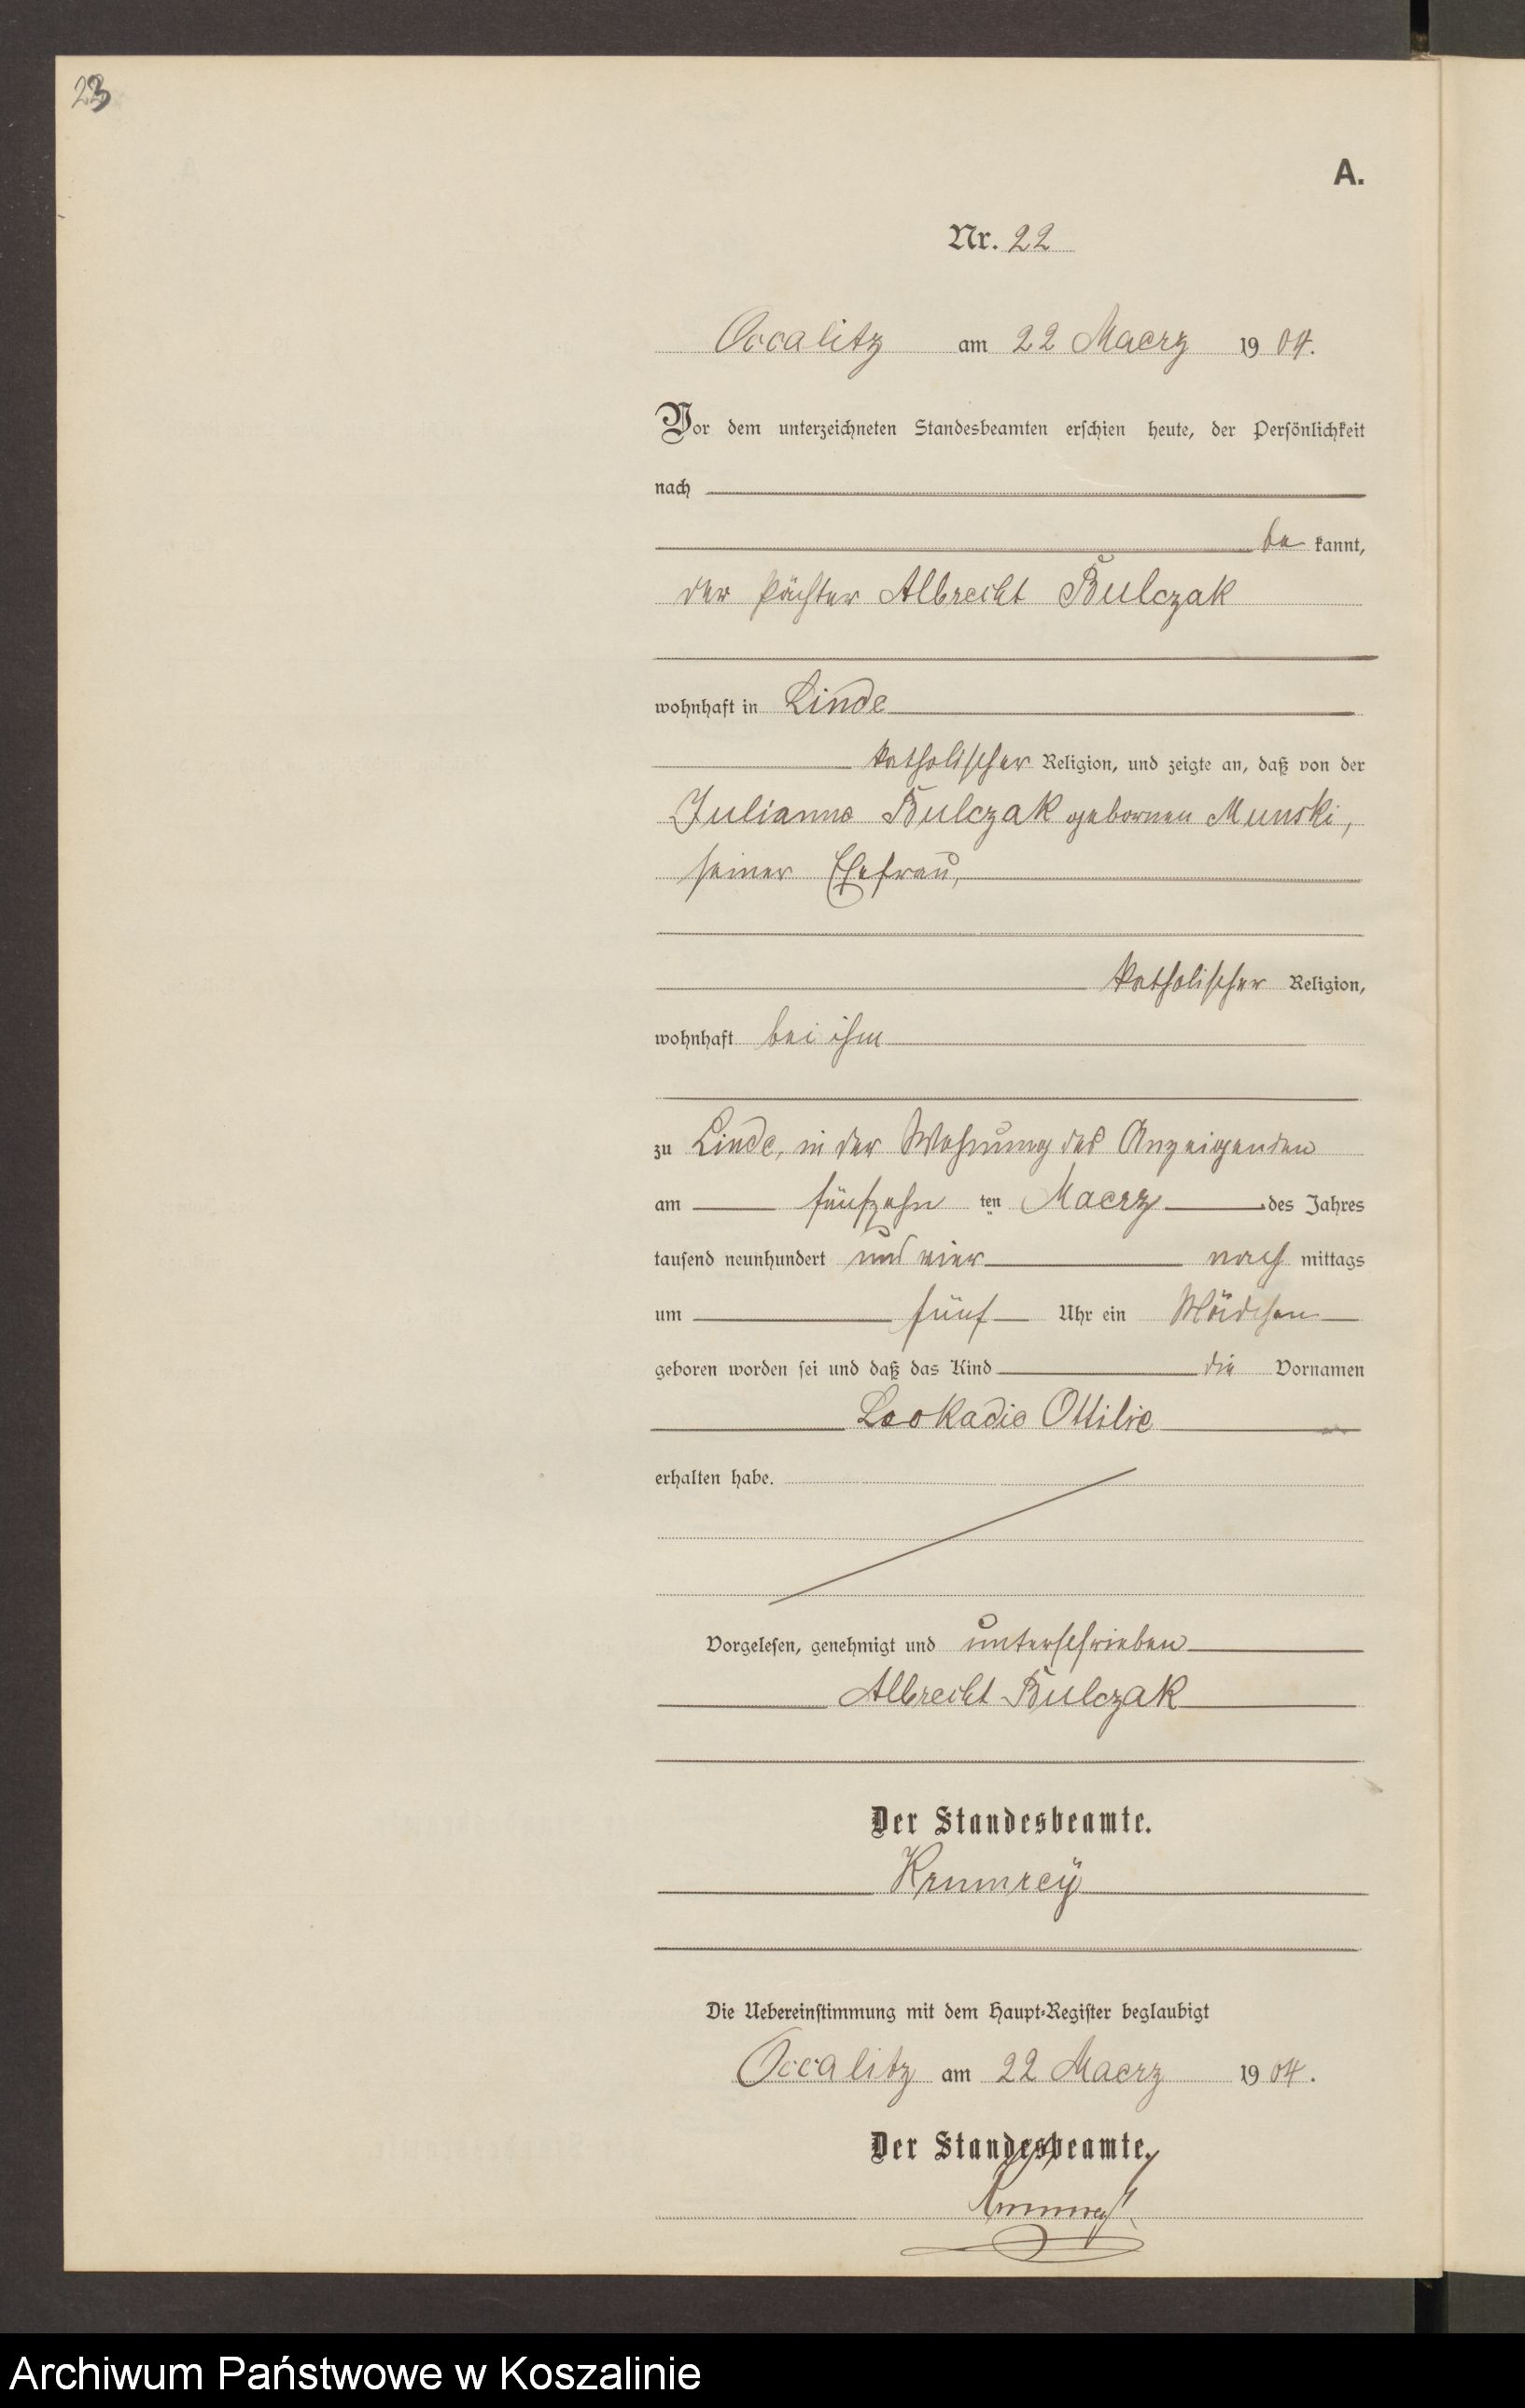 23
A.
Nr. 22
Occalitz am 22 Maerz 1904.
Vor dem unterzeichneten Standesbeamten erschien heute, der Persönlichkeit
nach
be kannt,
der Pächter Albrecht Bulczak
wohnhaft in Linde
katholischer Religion, und zeigte an, daß von der
Julianna Bulczak gebornen Munski,
seiner Ehefrau,
katholischer Religion,
wohnhaft bei ihm
zu Linde, in der Wohnung des Anzeigenden
am fünfzehn ten Maerz des Jahres
tausend neunhundert und vier nach mittags
um fünf Uhr ein Mädchen
geboren worden sei und daß das Kind die Vornamen
Leokadia Ottilie
erhalten habe.
Vorgelesen, genehmigt und unterschrieben
Albrecht Bulczak
Der Standesbeamte.
Krumrey
Die Uebereinstimmung mit dem Haupt-Register beglaubigt
Occalitz am 22 Maerz 1904.
Der Standesbeamte.
Krumrey
Archiwum Państwowe w Koszalinie